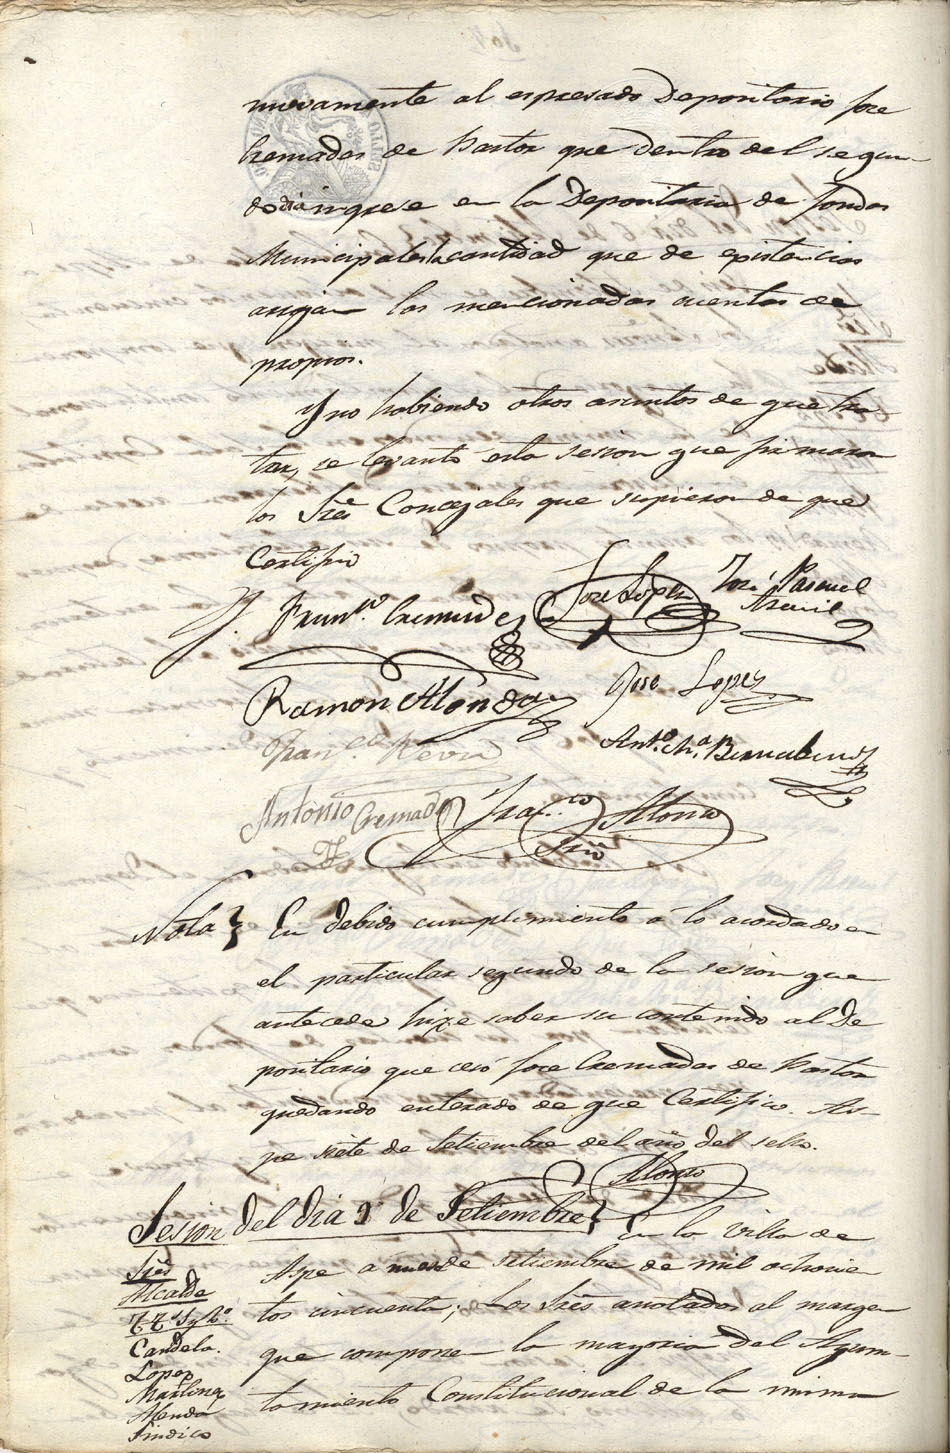 nuevamente al espresado Depositario Jose
Cremades de Pastor que dentro del segun-
do dia ingrese en la Depositaria de fondos
Municipales la cantidad que de existencias
arrojan las mencionadas cuentas de
propios.
Y no habiendo otros asuntos de que tra
tar, se levantó esta sesion que firmaron
los Sres Concejales que supieron de que
Certifico
Franco. Cremades
Jose Lopez
José Pascual
Ramon Alenda
Jose Lopez
Anto. Ma. Bernabeu
Franco.
Antonio Cremades
Franco Alonso
Srio
Nota} En debido cumplimiento a lo acordado en
el particular segundo de la sesion que
antecede hize saber su contenido al De
positario que cesó Jose Cremades de Pastor
quedando enterado de que Certifico. As-
pe siete de Setiembre del año del sello.
Alonso
Sesion del dia 9 de Setiembre} En la villa de
Aspe a nueve de Setiembre de mil ochocien
tos cincuenta; Los Sres anotados al margen
que componen la mayoria del Ayun-
tamiento Constitucional de la misma
Sres
Alcalde
Tts. 1º y 2º.
Candela.
Lopez
Martinez
Alenda
Sindico